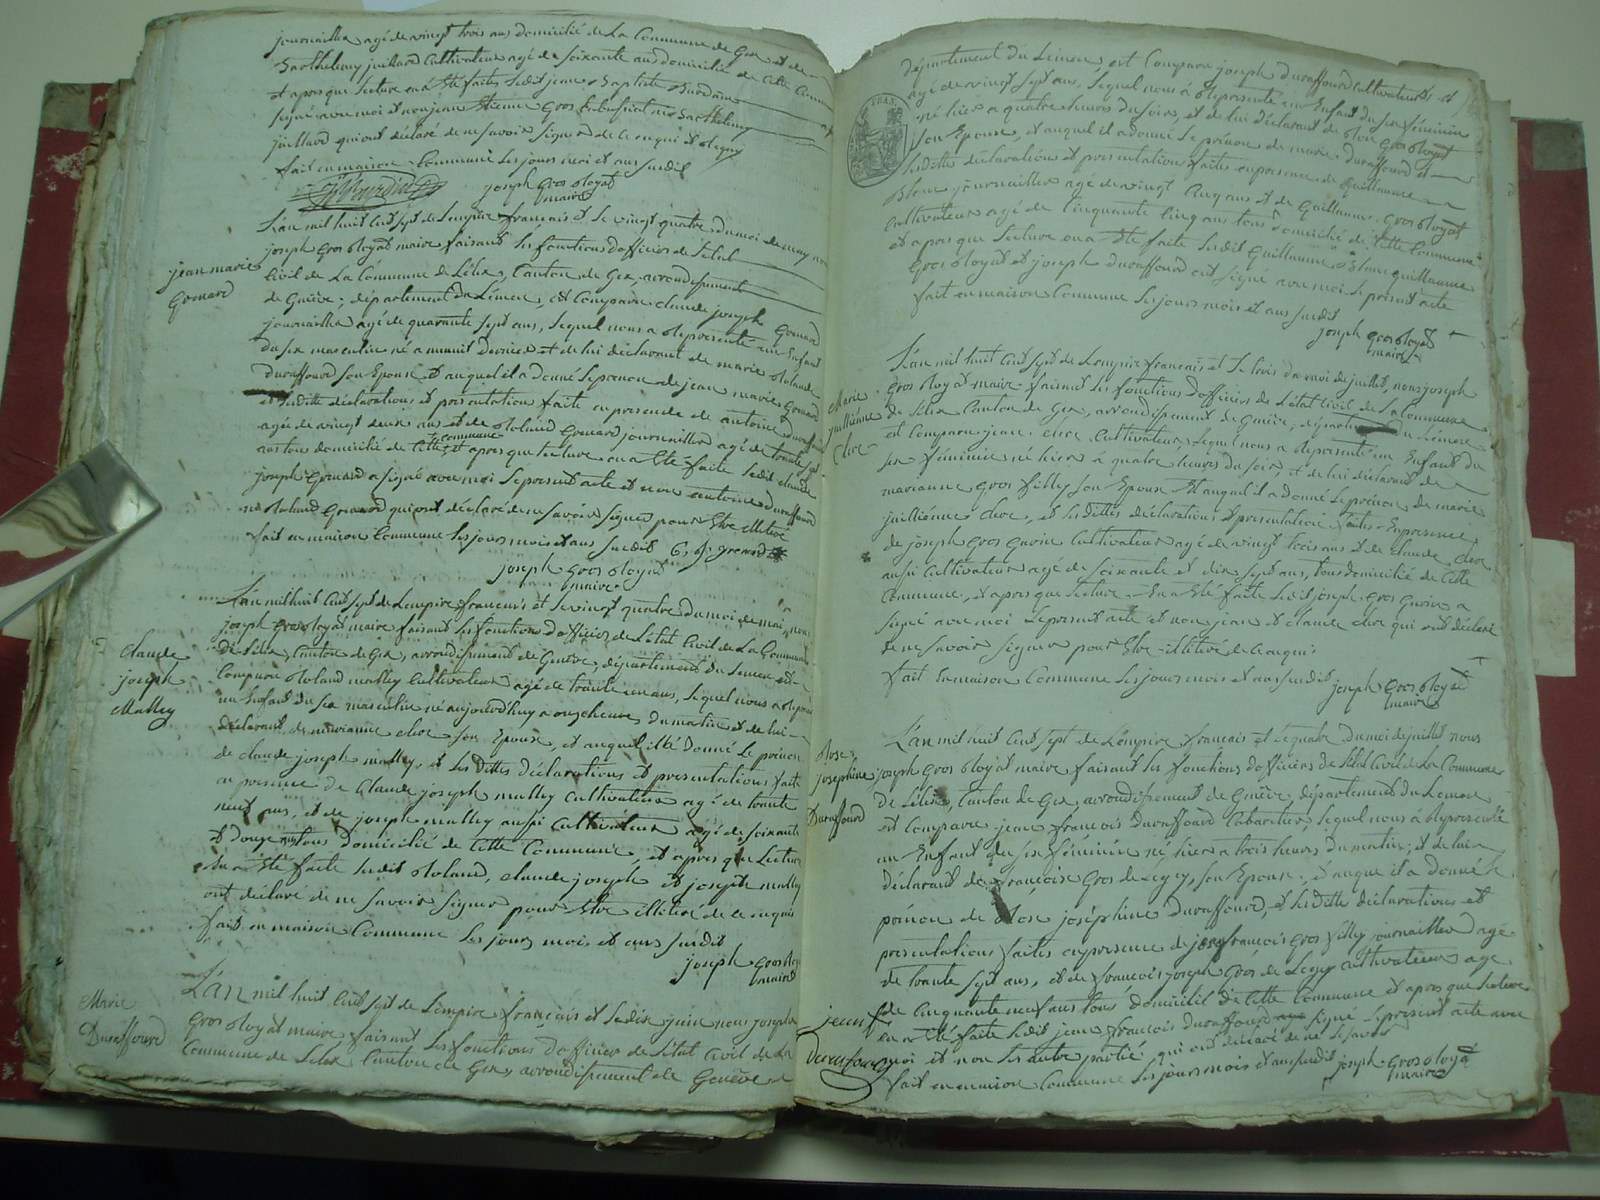 journailler agé de vingt trois ans domicilié de La Commune de Gex et de
Barthelemy juillard Cultivateur agé de soixante ans domicilié de Cette Commune
et apres que Lecture en a été faite Ledit jean Baptiste
signé avec moi et non jean Etienne Gros ni Barthelemy
juillard qui ont déclaré de ne savoir signer de ce enquis
fait en maison Commune Les jours moi et ans susdit
joseph Gros Royat
maire
L'an mil huit Cent sept de Lempire français et Le vingt quatre du moi de may nous
joseph Gros Royat maire faisant Les fonctions dofficier de Letat
jean marie
Civil de La Commune de Lelex, Canton de Gex, arrondissement
Gomard
de Genève, département du Léman, est Comparu claude joseph Gomard
journailler agé de quarante sept ans, Lequel nous a Représenté un Enfant
du sex masculin né a minuit dernier et de lui déclarant et de marie Rolande
Duraffourd son Epouse Et auquel il a donné Le prenon de jean marie Gomard
et Lesditte déclarations et présentation faite en presence de antoine Duraffourd
agé de vingt deux ans et de Roland Gomard journailler agé de trente sept
ans tous domicilié de Cette commune et apres que Lecture en a Eté faite Ledit claude
joseph Gomard a signé avec moi Le present acte et non antoine Duraffourd
ni Roland Gomard qui ont déclaré de ne savoir signer pour Etre illitéré
fait en maison Commune Les jours mois et ans susdit C. J. gromard
joseph Gros Royat
maire
L'an mil huit Cent sept de Lempire français et Le vingt quatre du moi de mai, nous
joseph Gros Royat maire faisant Les fonctions dofficier de Létat Civil de La Commune
Claude
de Lélex, Canton de Gex, arrondissement de Genève, département du Leman est
joseph
Comparu Roland malley Cultivateur agé de trente un ans, Lequel nous a Représenté
Malley
un Enfant du sex masculin né aujourdhuy a onze heures du matin et de lui
déclarant, de marianne cloc son Epouse, et auquel il a donné Le prénon
de claude joseph malley, et Les dittes déclarations et presentations faite
en presence de Claude joseph malley Cultivateur agé de trante
neuf ans, et de joseph malley aussi Cultivateur agé de soixante
et douze ans tous domicilié de Cette Commune, et apres que Lecture
en a Eté faite Ledit Roland, claude joseph et joseph malley
ont déclaré de ne savoir signer pour Etre illitéré de ce enquis
fait en maison Commune Les jours mois et ans susdit
joseph Gros Royat
maire
Marie
L'an mil huit Cent sept de Lempire français et Le dix juin nous joseph
Duraffourd
Gros Royat maire faisant Les fonctions dofficier de Létat Civil de La
Commune de Lelex Canton de Gex, arrondissement de Genève
département du Léman est Comparu joseph Duraffourd Cultivateur
agé de vingt sept ans, Lequel nous a Représenté un Enfant du sex féminin
né hier a quatre heures du soir, et de lui déclarant de Gros Royat
son Epouse, et auquel il a donné Le prénon de marie Duraffourd et
Lesditte déclaration et présentation faite en presence de Guillaume
Blanc journailler agé de vingt Cinq ans et de Guillaume Gros Royat
Cultivateur agé de Cinquante Cinq ans tous domicilié de Cette Commune
et apres que Lecture en a Eté faite Ledit Guillaume Blanc guillaume
Gros Royat et joseph Duraffourd ont signé avec moi Le présent acte
fait en maison Commune Les jours mois et ans susdit
joseph Gros Royat
maire
L'an mil huit Cent sept de Lempire français et Le trois du moi de juillet, nous joseph
Marie
Gros Royat maire faisant Les fonctions dofficier de Létat Civil de La Commune
juillienne
de Lélex Canton de Gex, arrondissement de Genève, département du Léman
Cloc
est Comparu jean cloc Cultivateur Lequel nous a Représenté un Enfant du
sex féminin né hier à quatre heures du soir et de lui déclarant de
marianne Gros filley son Epouse Et auquel il a donné Le prénon de marie
juillienne cloc, et Lesdittes déclarations Et presentation faites En presence
de joseph Gros Gurin Cultivateur agé de vingt trois ans et de claude cloc
aussi Cultivateur agé de soixante et dix sept ans, tous domicilié de Cette
Commune, et apres que Lecture En a Eté faite Ledit joseph Gros Gurin a
signé avec moi Le present acte et non jean et claude cloc qui ont déclaré
de ne savoir signer pour Etre illitéré de ce enquis
fait En maison Commune Les jours mois et ans susdit
joseph Gros Royat
maire
L'an mil huit Cent sept de Lempire français et Le quatre du moi de juillet nous
Rose
joséphine
joseph Gros Royat maire faisant Les fonctions dofficier de Létat Civil de La Commune
de Lélex, Canton de Gex, arrondissement de Genève, département du Léman
Duraffourd
est Comparu jean françois Duraffourd Cabaretier, Lequel nous a Représenté
un Enfant du sex féminin né hier a trois heures du matin, et de lui
déclarant de françoise Gros de Legey, son Epouse, et auquel il a donné Le
prénon de Rose joséphine Duraffourd, et Lesditte déclarations et
presentations faites en presence de jean françois Gros filley journailler agé
de trante sept ans, et de françois joseph Gros de Legey Cultivateur agé
de Cinquante neuf ans tous domicilié de Cette Commune et apres que Lecture
en a Eté faite Ledit jean françois Duraffourd a signé Le present acte avec
moi et non Les autre partie qui ont déclaré de ne le savoir
fait en maison Commune Les jours mois et ans susdit joseph Gros Royat
maire
jean f
Duraffourd